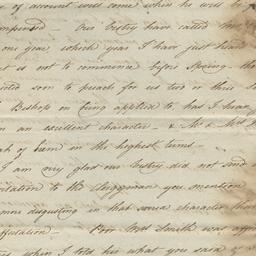 of account will come when he will be
Our Vestry have called
one year which year I have just heard
is not to commence before Spring - the
soon to preach for us two or three
Bishop on being applied to has I hear
an excellent character - & Mr & Mrs
of him in the highest terms -
I am very glad our Vestry did not send
to the Clergyman you mention
disgusting in that sacred character than
affectation - Poor Mrs Smith was
when I told her what you said of